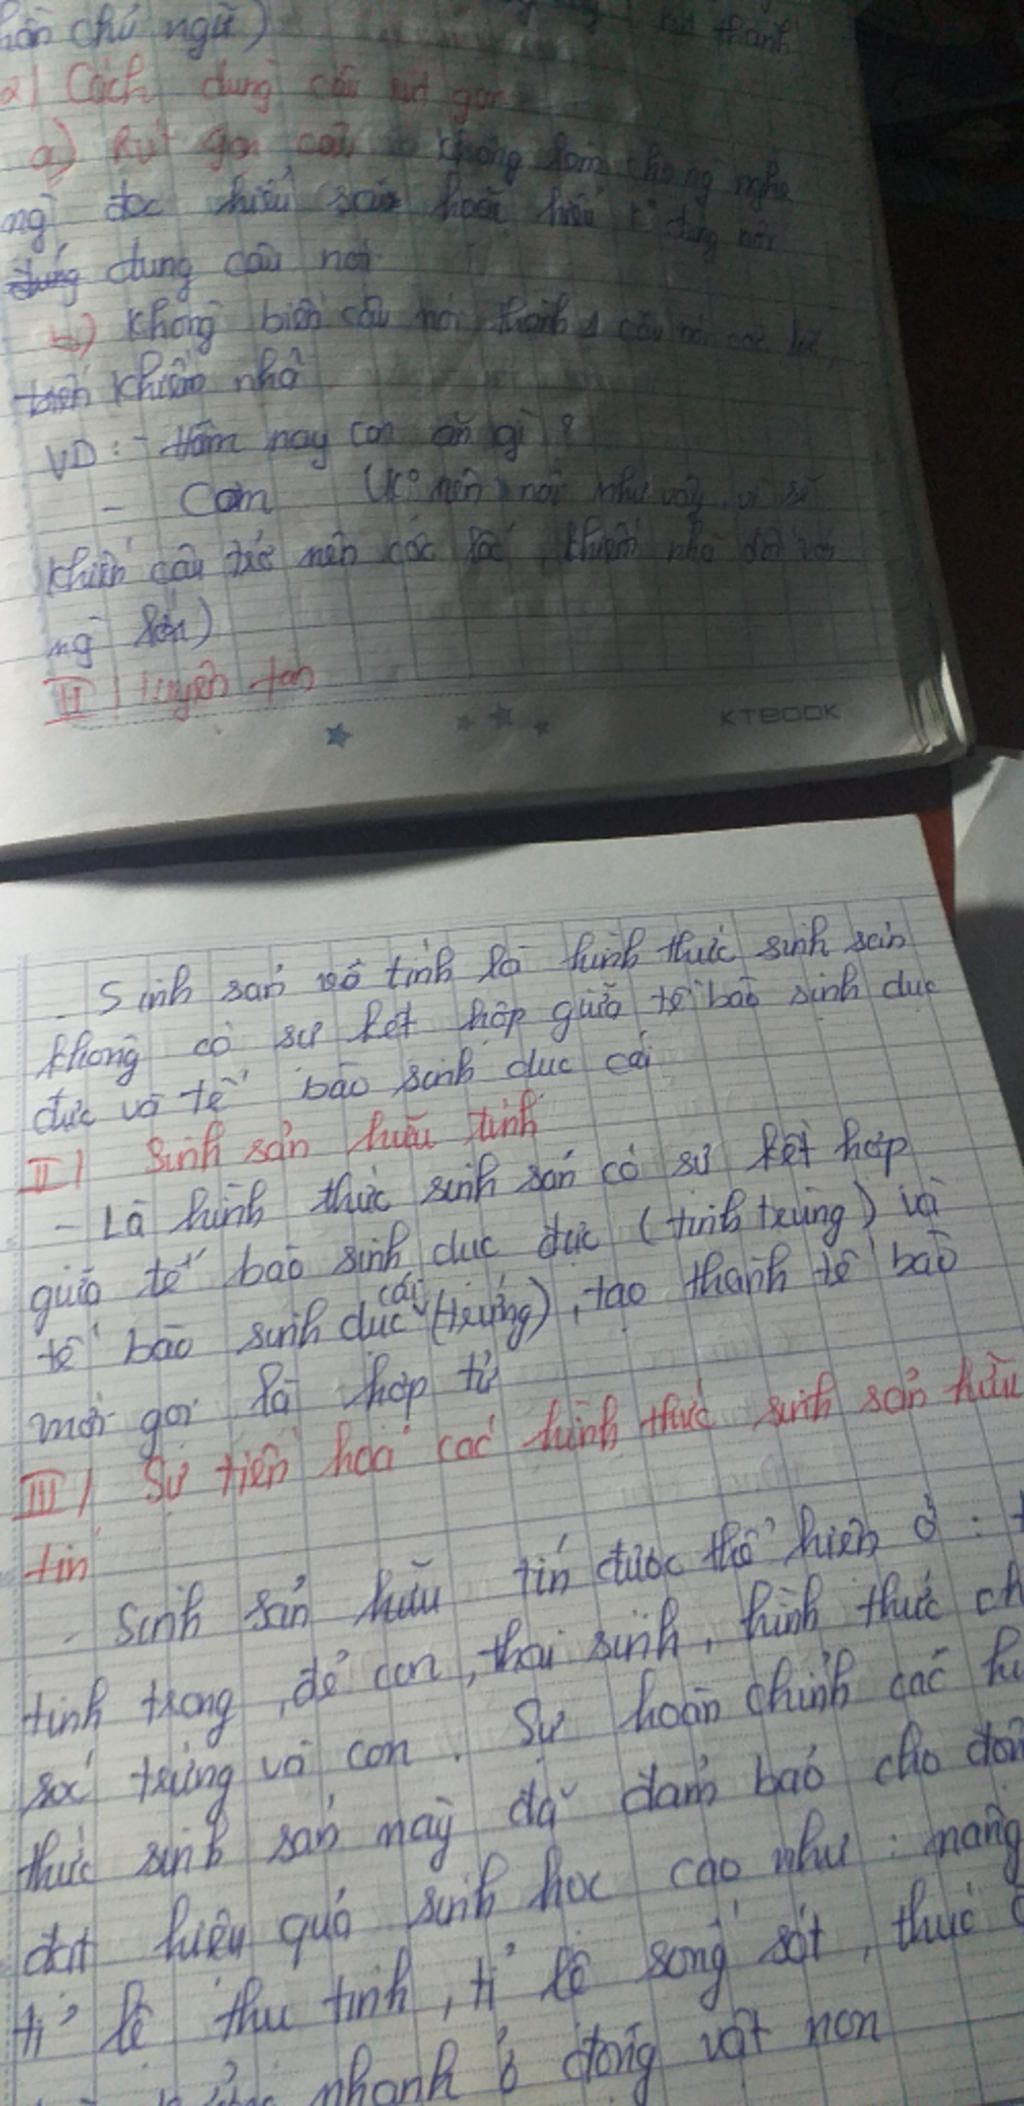 chủ ngữ)
thành
2) Cách dùng câu rút gọn
a) Rút gọn câu không làm cho ng nghe
ng đọc hiểu sai hoặc hiểu k đúng nội
dung câu nói
b) Không biến câu nói thành 1 câu nói cộc lốc,
khiếm nhã
VD: - Hôm nay con ăn gì?
- Cơm (Ko nên nói như vậy, vì sẽ
khiến câu trở nên cộc lốc, khiếm nhã đối với
ng lớn)
II) Luyện tập
KTBOOK
- Sinh sản vô tính là hình thức sinh sản
không có sự kết hợp giữa tế bào sinh dục
đực và tế bào sinh dục cái
II) Sinh sản hữu tính
- Là hình thức sinh sản có sự kết hợp
giữa tế bào sinh dục đực (tinh trùng) và
tế bào sinh dục cái (trứng), tạo thành tế bào
mới gọi là hợp tử
III) Sự tiến hoá các hình thức sinh sản hữu
tín
- Sinh sản hữu tín được thể hiện ở:
tinh trong, đẻ con, thai sinh, hình thức
sóc trứng và con. Sự hoàn chỉnh các
thức sinh sản này đã đảm bảo cho
đạt hiệu quả sinh học cao như: nâng
tỉ lệ thụ tinh, tỉ lệ sống sót, thúc
nhanh ở động vật non